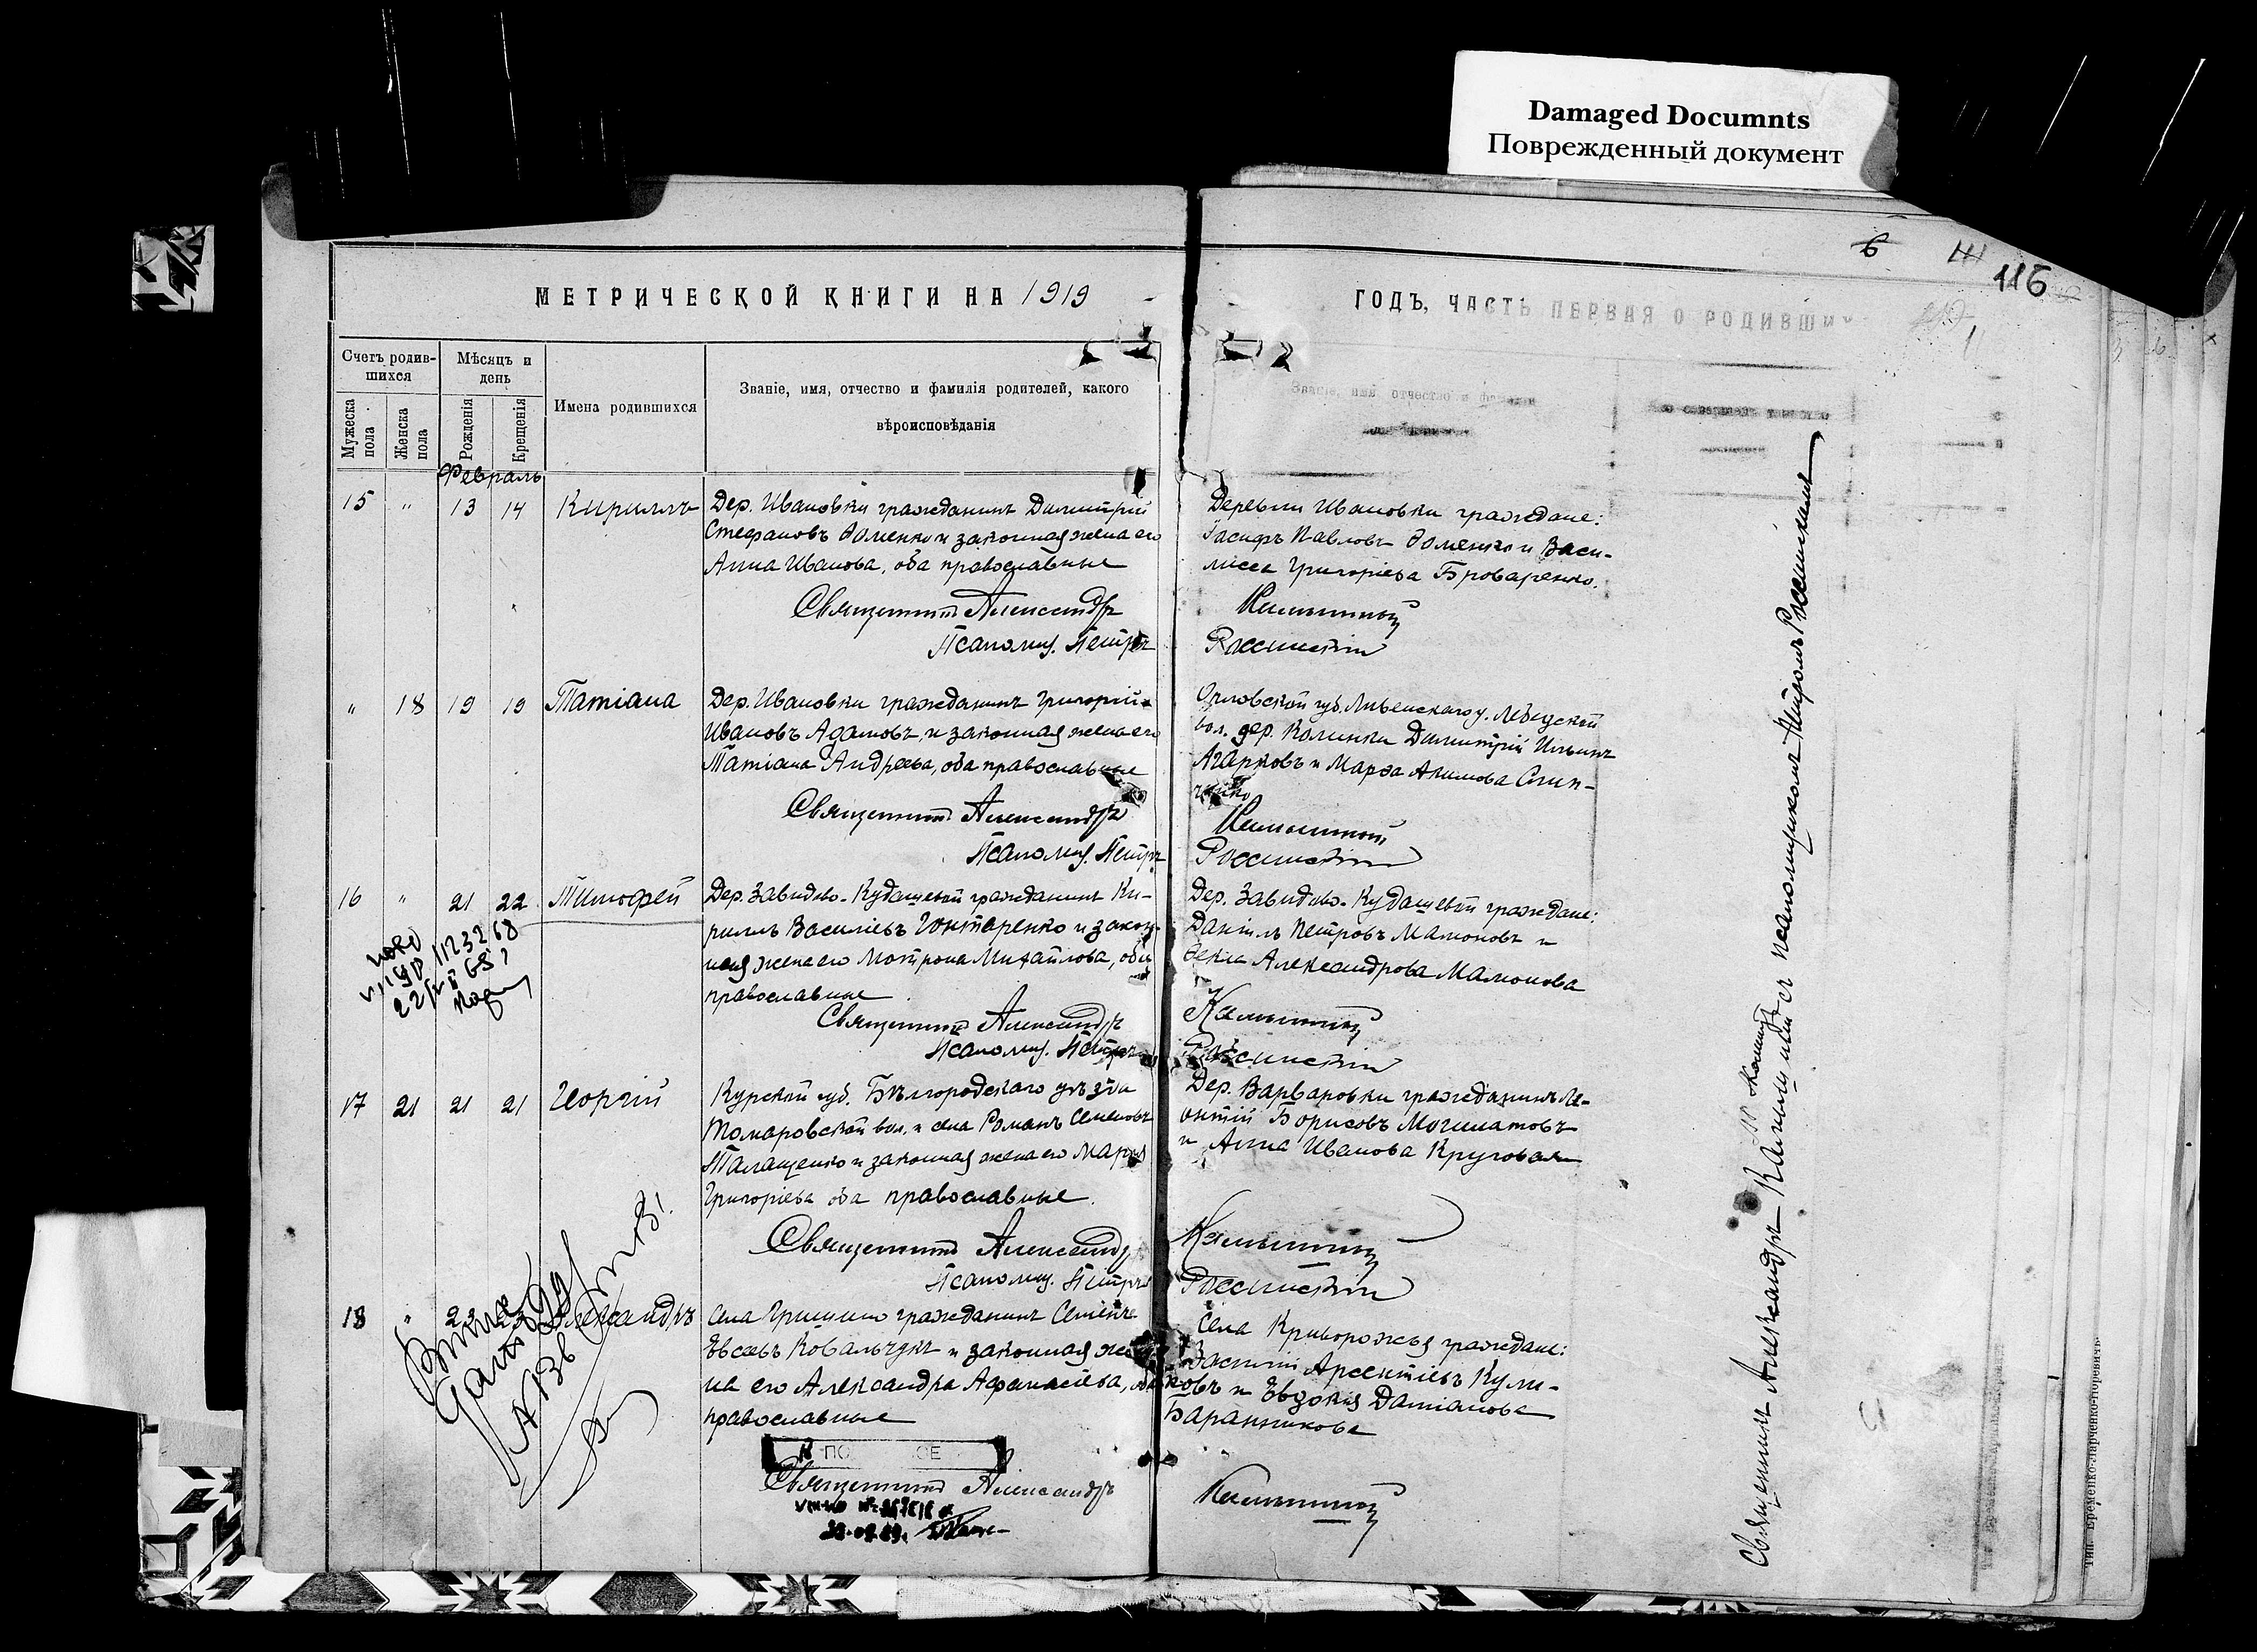 Damaged Documnts
Поврежденный документ
6
116
МЕТРИЧЕСКОЙ КНИГИ НА 1919
ГОДЪ, ЧАСТЬ ПЕРВАЯ О РОДИВШИ
Счетъ родив-
шихся
Мужеска
пола
Женска
пола
Мѣсяцъ и
день
Рожденія
Крещенія
Имена родившихся
Званіе, имя, отчество и фамилія родителей, какого
вѣроисповѣданія
Званіе, имя отчество и фамилія
Февраль
15 " 13 14 Кириллъ
Дер. Ивановки гражданинъ Димитрій
Стефановъ Ѳоменко и законная жена его
Анна Иванова, оба православные
Священникъ Александръ
Псаломщ. Петръ
Деревни Ивановки граждане:
Іосифъ Павловъ Ѳоменко и Васи-
лисса Григоріева Броваренко.
" 18 19 19 Татіана
Дер. Ивановки гражданинъ Григорій
Ивановъ Адамовъ и законная жена его
Татіана Андреева, оба православные
Священникъ Александръ
Псаломщ. Петръ
Орловской губ. Ливенскаго у.
вол. дер. Калинки Димитрій Ильинъ
Агарковъ и Марѳа Акимова Слип-
ченко
16 " 21 22 Тимофей
Дер. Завидово-Кудашевой гражданинъ Ки-
риллъ Василіевъ Гонтаренко и закон-
ная жена его Мотрона Михайлова, оба
православные
Священникъ Александръ
Псаломщ. Петръ
Дер. Завидово-Кудашевой граждане:
Даніилъ Петровъ Мамоновъ и
Ѳекла Александрова Мамонова
17 21 21 21 Георгій
Курской губ. Бѣлгородскаго уѣзда
Томаровской вол. и села Романъ Семеновъ
Талащенко и законная жена его Марія
Григоріева оба православные.
Священникъ Александръ
Псаломщ. Петръ
Дер. Варваровки гражданинъ Ле-
онтій Борисовъ
и Анна Иванова Круговая
18 " 23 23 Александръ
Села Гришино гражданинъ Семенъ
Евсеевъ Ковальчукъ и законная же-
на его Александра Афанасіева, оба
православные
Священникъ Александръ
Села Криворожья граждане:
Василій Арсентіевъ Кули-
ковъ и Евдокія Даміанова
Баранникова
Священникъ Александръ с псаломщикомъ Петромъ
тип. Еременко-Марченко-Норевичъ